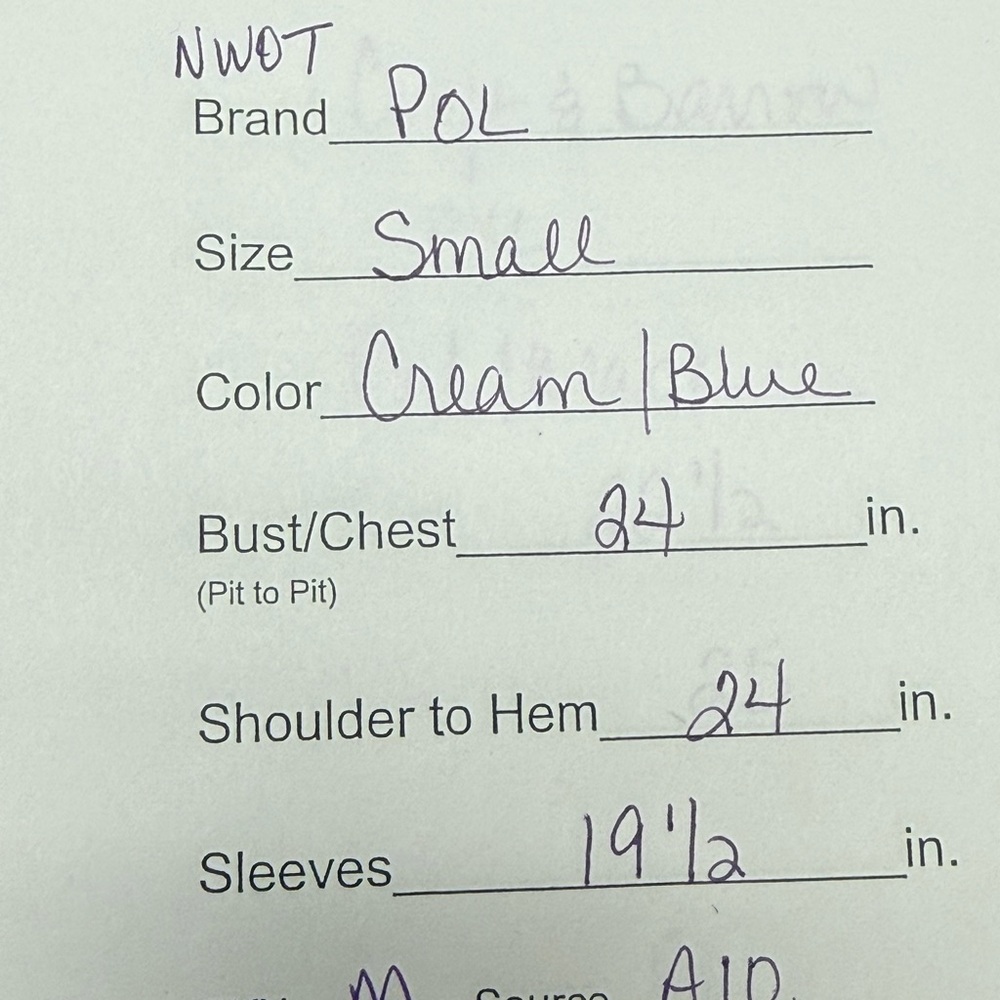 NWOT
Brand POL
Size Small
Color Cream/Blue
Bust/Chest 24 in.
(Pit to Pit)
Shoulder to Hem 24 in.
Sleeves 19 1/2 in.
M Source